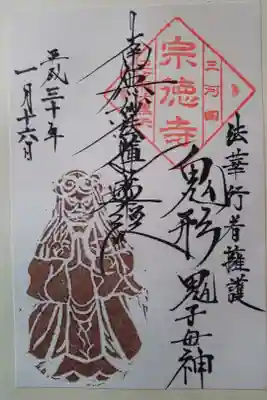 三河国
宗徳寺
法華行者擁護
鬼形鬼子母神
南無妙法蓮華経
平成三十年
一月十六日